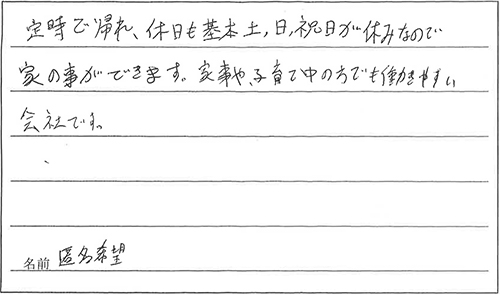 定時で帰れ、休日も基本土,日,祝日が休みなので
家の事ができます。家事や、子育て中の方でも働きやすい
会社です。
名前 匿名希望